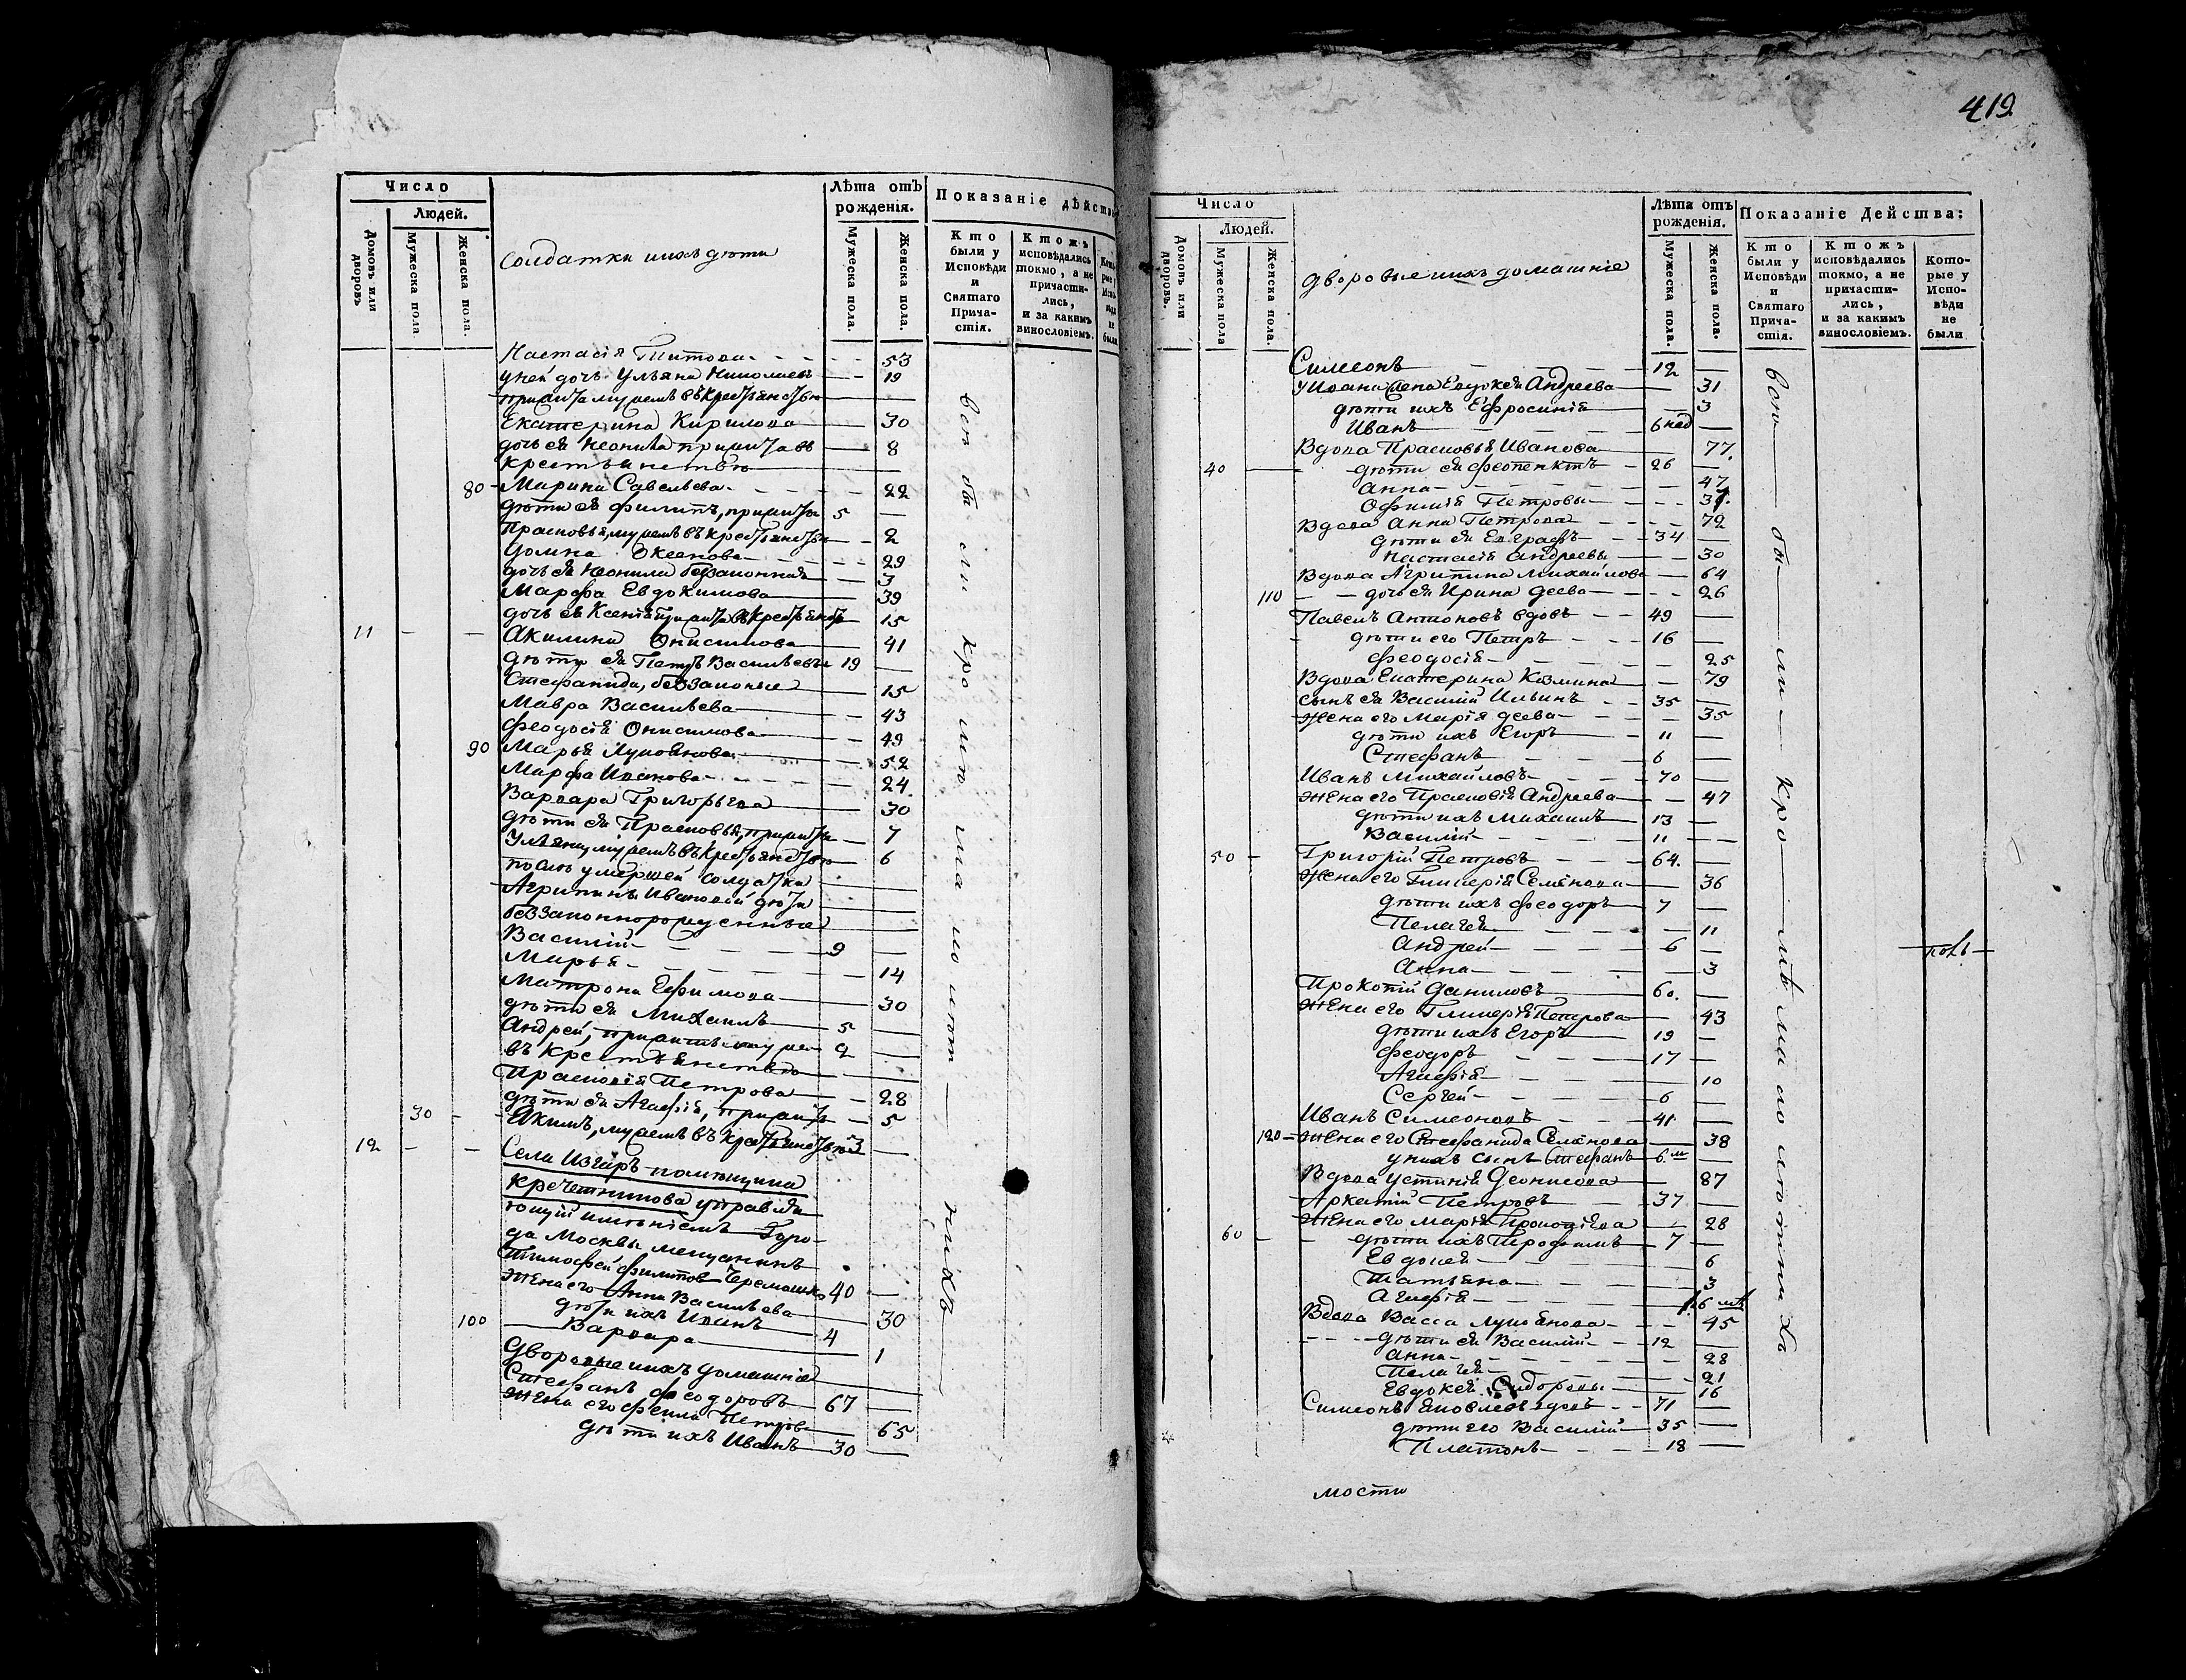 Число
Людей.
Домовъ или дворовъ
Мужеска пола
Женска пола.
Солдатки и ихъ дѣти
Лѣта отъ рожденія.
Мужеска пола.
Женска пола.
Показаніе дѣйств
Кто были у Исповѣди и Святаго Прича-стія.
Ктожъ исповѣдались токмо, а не причасти-лись, и за какимъ винословіемъ.
Настасія Титова 53
у ней дочь Ульяна 19
Екатерина Кирилова 30
дочь ея Неонила 8
крестьянствѣ
80 Марина Савельева 22
дѣти ея Филипъ, 5
Прасковья, 2
Домна 29
дочь ея Неонила беззаконная 3
Марфа Евдокимова 39
дочь ея Ксенія 15
11 Акилина Онисимова 41
дѣти ея Петръ Васильевъ 19
Стефанида, беззаконые 15
Мавра Васильева 43
Феодосія Онисимова 49
90 Марья Лукоянова 52
Марфа Иванова 24
Варвара Григорьева 30
дѣти ея Прасковья, 7
6
послѣ умершей солдатки
Агрипины Ивановой дѣти
беззаконнорожденные
Василій 9
Марья 14
Матрона Ефимова 30
дѣти ея Михаилъ 5
Андрей, 2
въ крестьянствѣ
Прасковія Петрова 28
дѣти ея Агафія, 5
30 Якимъ, 3
12 Села помѣщика
Кречетникова управля
ющій имѣніемъ Горо-
да Москвы мещанинъ
Тимофей Филипов 40
Жена его Анна Васильева 30
дѣти ихъ Иванъ 4
100 Варвара 1
Дворовые ихъ домашніе
Стефанъ Феодоровъ 67
Жена его Фекла Петров 65
дѣти ихъ Иванъ 30
всѣ бы ли кро мѣ ма ло лѣт нихъ
419
Число
Людей.
Домовъ или дворовъ.
Мужеска пола
Женска пола.
дворовые ихъ домашніе
Лѣта отъ рожденія.
Мужеска пола.
Женска пола.
Показаніе Действа:
Кто были у Исповѣди и Святаго Прича-стія.
Ктожъ исповѣдались токмо, а не причасти-лись, и за какимъ винословіемъ.
Кото-рые у Испо-вѣди не были
Симеонъ 12
у Ивана жена Евдокея Андреева 31
дѣти ихъ Ефросинія 3
Иванъ 6 нед
Вдова Прасковья Иванова 77.
40 дѣти ея Феопенктъ 26
Анна 47
Офимія Петровы 37.
Вдова Анна Петрова 72
дѣти ея Евграфъ 34
Настасія Андреевы 30
Вдова Агрипина Михайлова 64
110 дочь ея Ирина Деева 26
Павелъ Антоновъ вдовъ 49
дѣти его Петръ 16
Феодосія 25
Вдова Екатерина Козмина 79
сынъ ея Василій Ильинъ 35
Жена его Марія Деева 35
дѣти ихъ Егоръ 11
Стефанъ 6
Иванъ Михайловъ 70
Жена его Прасковія Андреева 47
дѣти ихъ Михаилъ 13
Василій 11
50 Григорій Петровъ 64.
Жена его Гликерія Семенова 36
дѣти ихъ Феодоръ 7
Пелагея 11
Андрей 6
Анна 3
Прокопій Даниловъ 60.
Жена его Гликерія Петрова 43
дѣти ихъ Егоръ 19
Феодоръ 17
Агафія 10
Сергей 6
Иванъ Симеоновъ 41
120 Жена его Стефанида Семенова 38
у нихъ сынъ Стефанъ 6. м
Вдова Устинія Деонисова 87
Аркатій Петровъ 37
Жена его Марія Прокопіева 28
60 дѣти ихъ Трофимъ 7
Евдокея 6
Татьяна 3
Агафія 6 мѣ
Вдова Васса Лукоянова 45
дѣти ея Василій 12
Анна 28
Пелагея 21
Евдокея Сидоровы 16
Симеонъ Яковлевъ вдовъ 71
дѣти его Василій 35
Платонъ 18
всѣ бы ли кро мѣ ма ло лѣтни хъ
мости